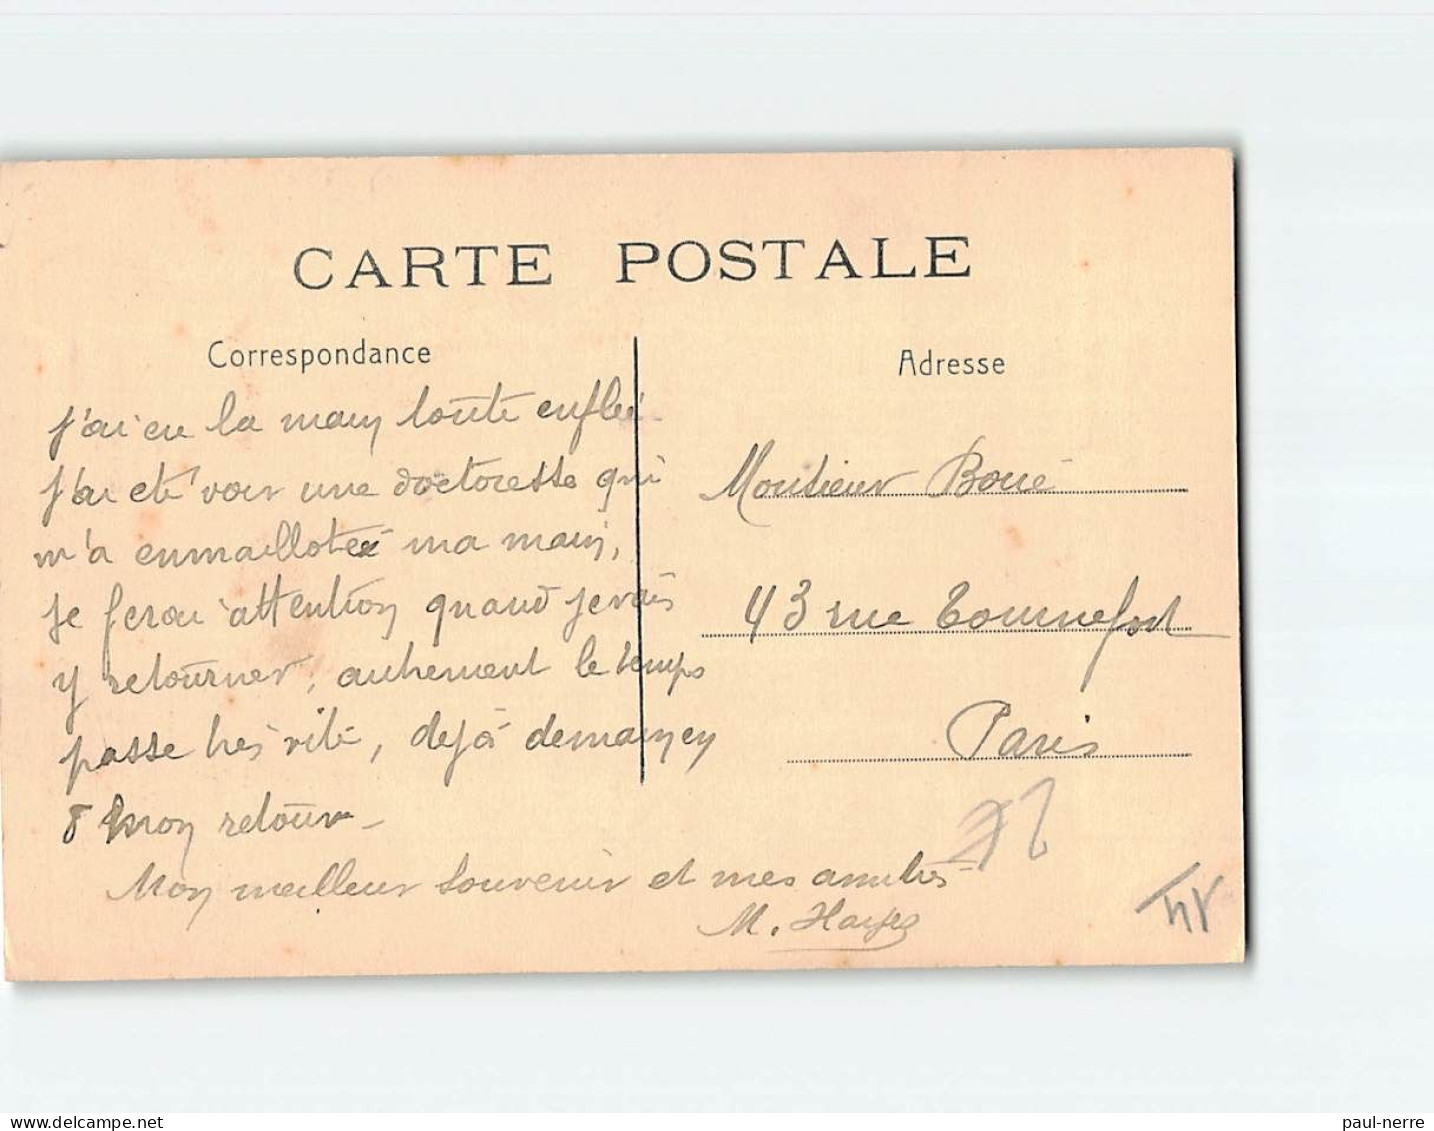 CARTE POSTALE
Correspondance
J'ai eu la main toute enflée.
J'ai été voir une doctoresse qui
m'a enmaillotée ma main,
je ferai attention quand je vais
y retourner, autrement le temps
passe très vite, dejà demain en
8 mon retour -
Mon meilleur souvenir et mes amitiés
M.
Adresse
Monsieur Boué
43 rue Tournefort
Paris
paul-nerre